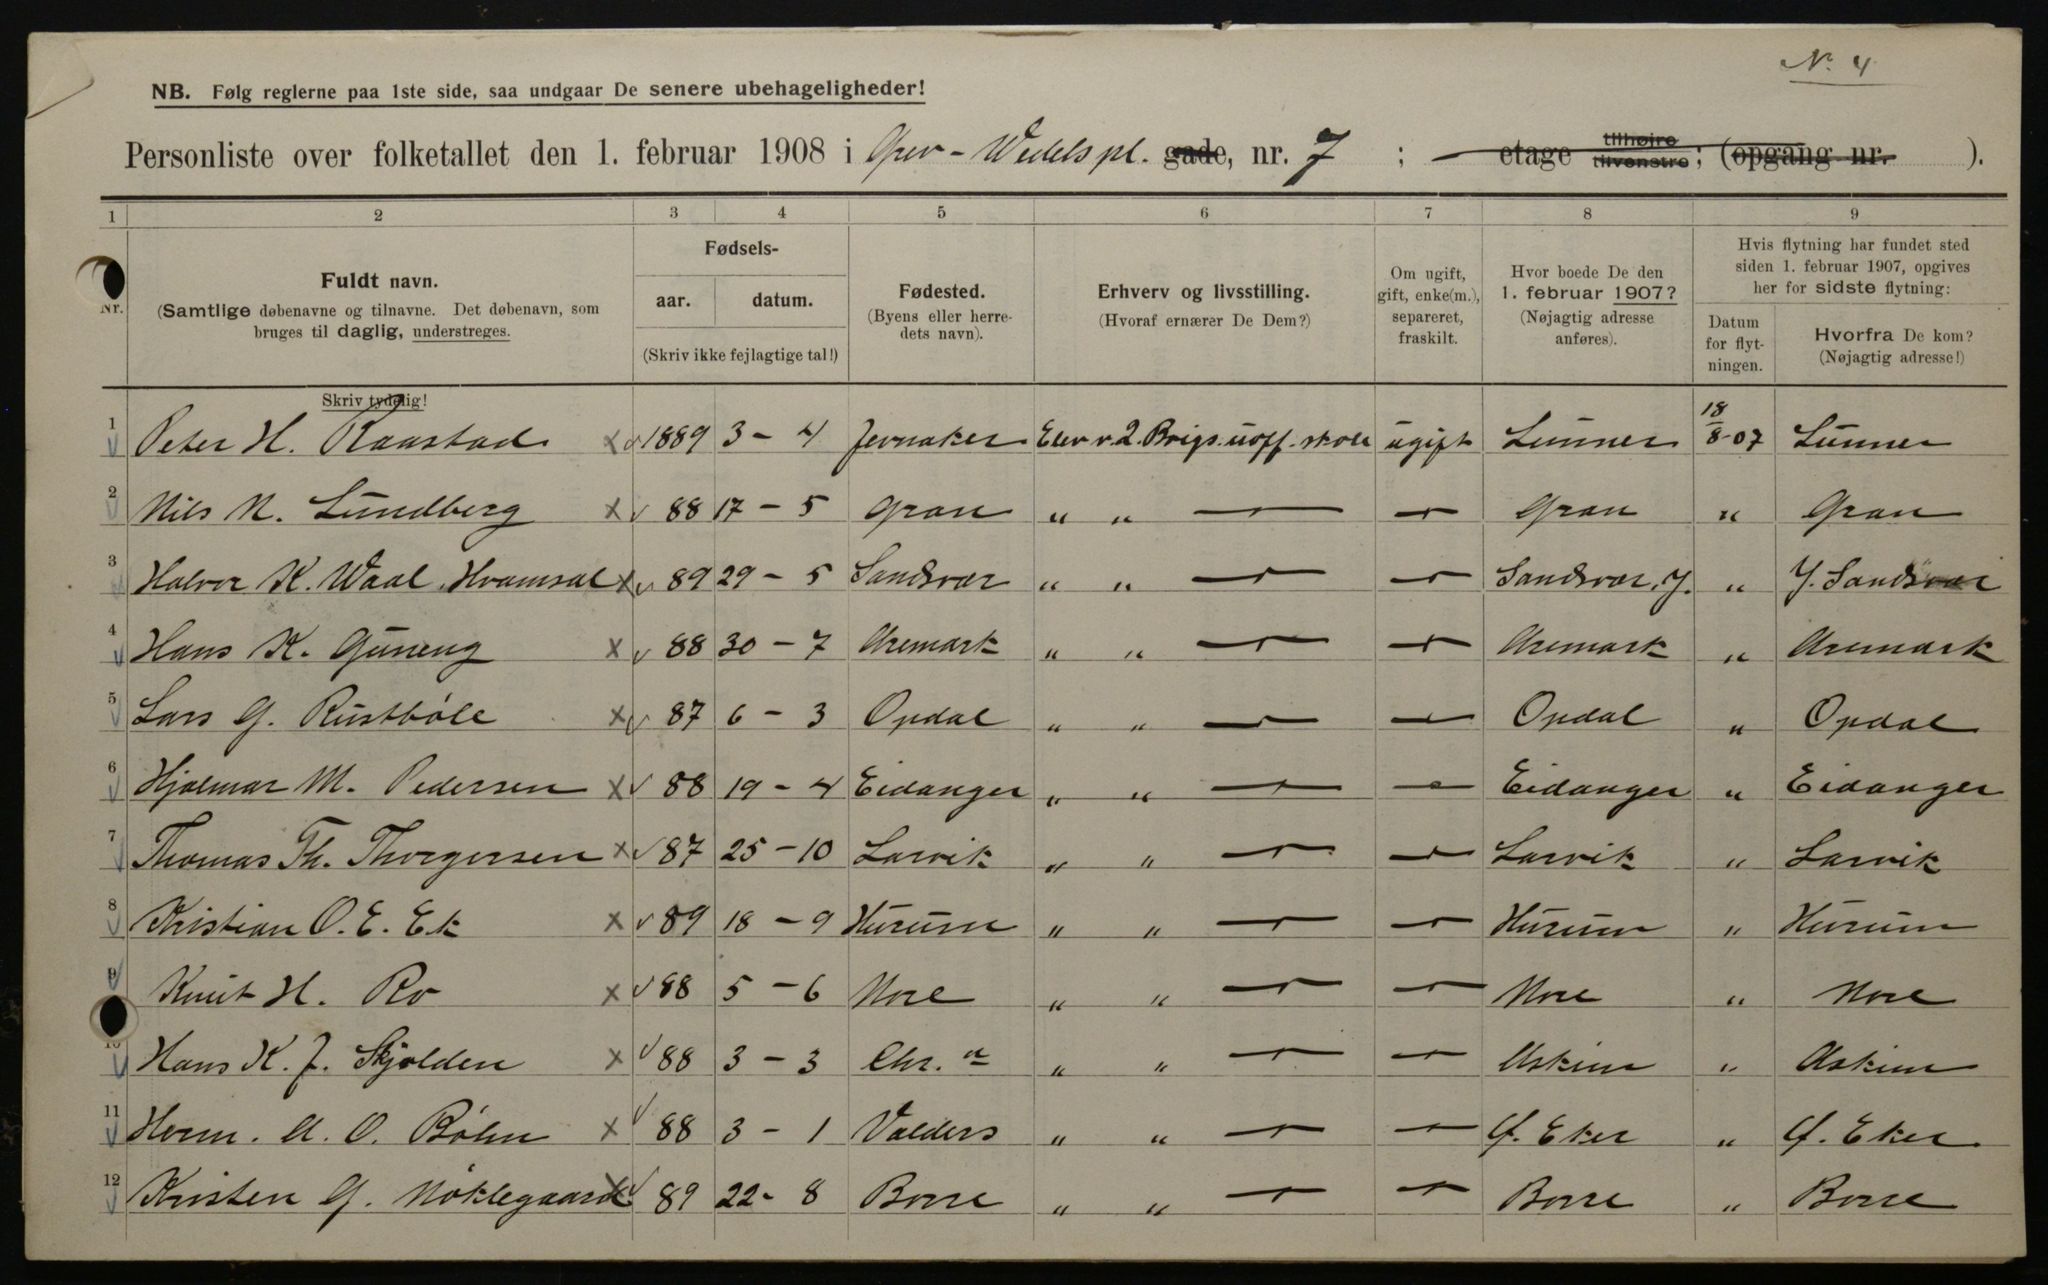 No. 4
NB. Følg reglerne paa 1ste side, saa undgaar De senere ubehageligheder!
Personliste over folketallet den 1. februar 1908 i Grev-Wedels pl. gade, nr. 7 ; etage tilhøire tilvenstre; (opgang nr. ).
1 2 3 4 5 6 7 8 9
Nr.
Fuldt navn.
(Samtlige døbenavne og tilnavne. Det døbenavn, som
bruges til daglig, understreges.
Skriv tydelig!
Fødsels-
aar. datum.
(Skriv ikke fejlagtige tal!)
Fødested.
(Byens eller herre-
dets navn).
Erhverv og livsstilling.
(Hvoraf ernærer De Dem?)
Om ugift,
gift, enke(m.),
separeret,
fraskilt.
Hvor boede De den
1. februar 1907?
(Nøjagtig adresse
anføres).
Hvis flytning har fundet sted
siden 1. februar 1907, opgives
her for sidste flytning:
Datum
for flyt-
ningen.
Hvorfra De kom?
(Nøjagtig adresse!)
1 Peter H. Raastad 1889 3 - 4 Jevnaker Elev v. 2. Brigs. uoff. skole ugift Lunner 18/8-07 Lunner
2 Nils N. Lundberg 88 17 - 5 Gran " " — — Gran " Gran
3 Halvor K. Waal Hvamsal 89 29 - 5 Sandsvær " " — — Sandsvær, Y. " Y. Sandsvær
4 Hans K. Guneng 88 30 - 7 Aremark " " — — Aremark " Aremark
5 Lars G. Rustbøle 87 6 - 3 Opdal " " — — Opdal " Opdal
6 Hjalmar M. Pedersen 88 19 - 4 Eidanger " " — — Eidanger " Eidanger
7 Thomas Th. Thorgersen 87 25 - 10 Larvik " " — — Larvik " Larvik
8 Kristian O. E. Ek 89 18 - 9 Hurum " " — — Hurum " Hurum
9 Knut H. Ro 88 5 - 6 Nore " " — — Nore " Nore
10 Hans K. J. Skjolden 88 3 - 3 Chr.a " " — — Askim " Askim
11 Herm. A. O. Bøhn 88 3 - 1 Valders " " — — Ø. Eker " Ø. Eker
12 Kristen G. Nøklegaard 89 22 - 8 Borre " " — — Borre " Borre